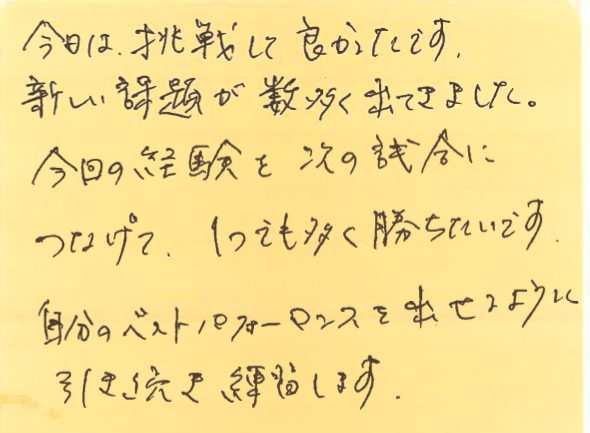 今日は、挑戦して良かったです。
新しい課題が数多く出てきました。
今回の経験を次の試合に
つなげて、1つでも多く勝ちたいです。
自分のベストパフォーマンスを出せるように
引き続き練習します。